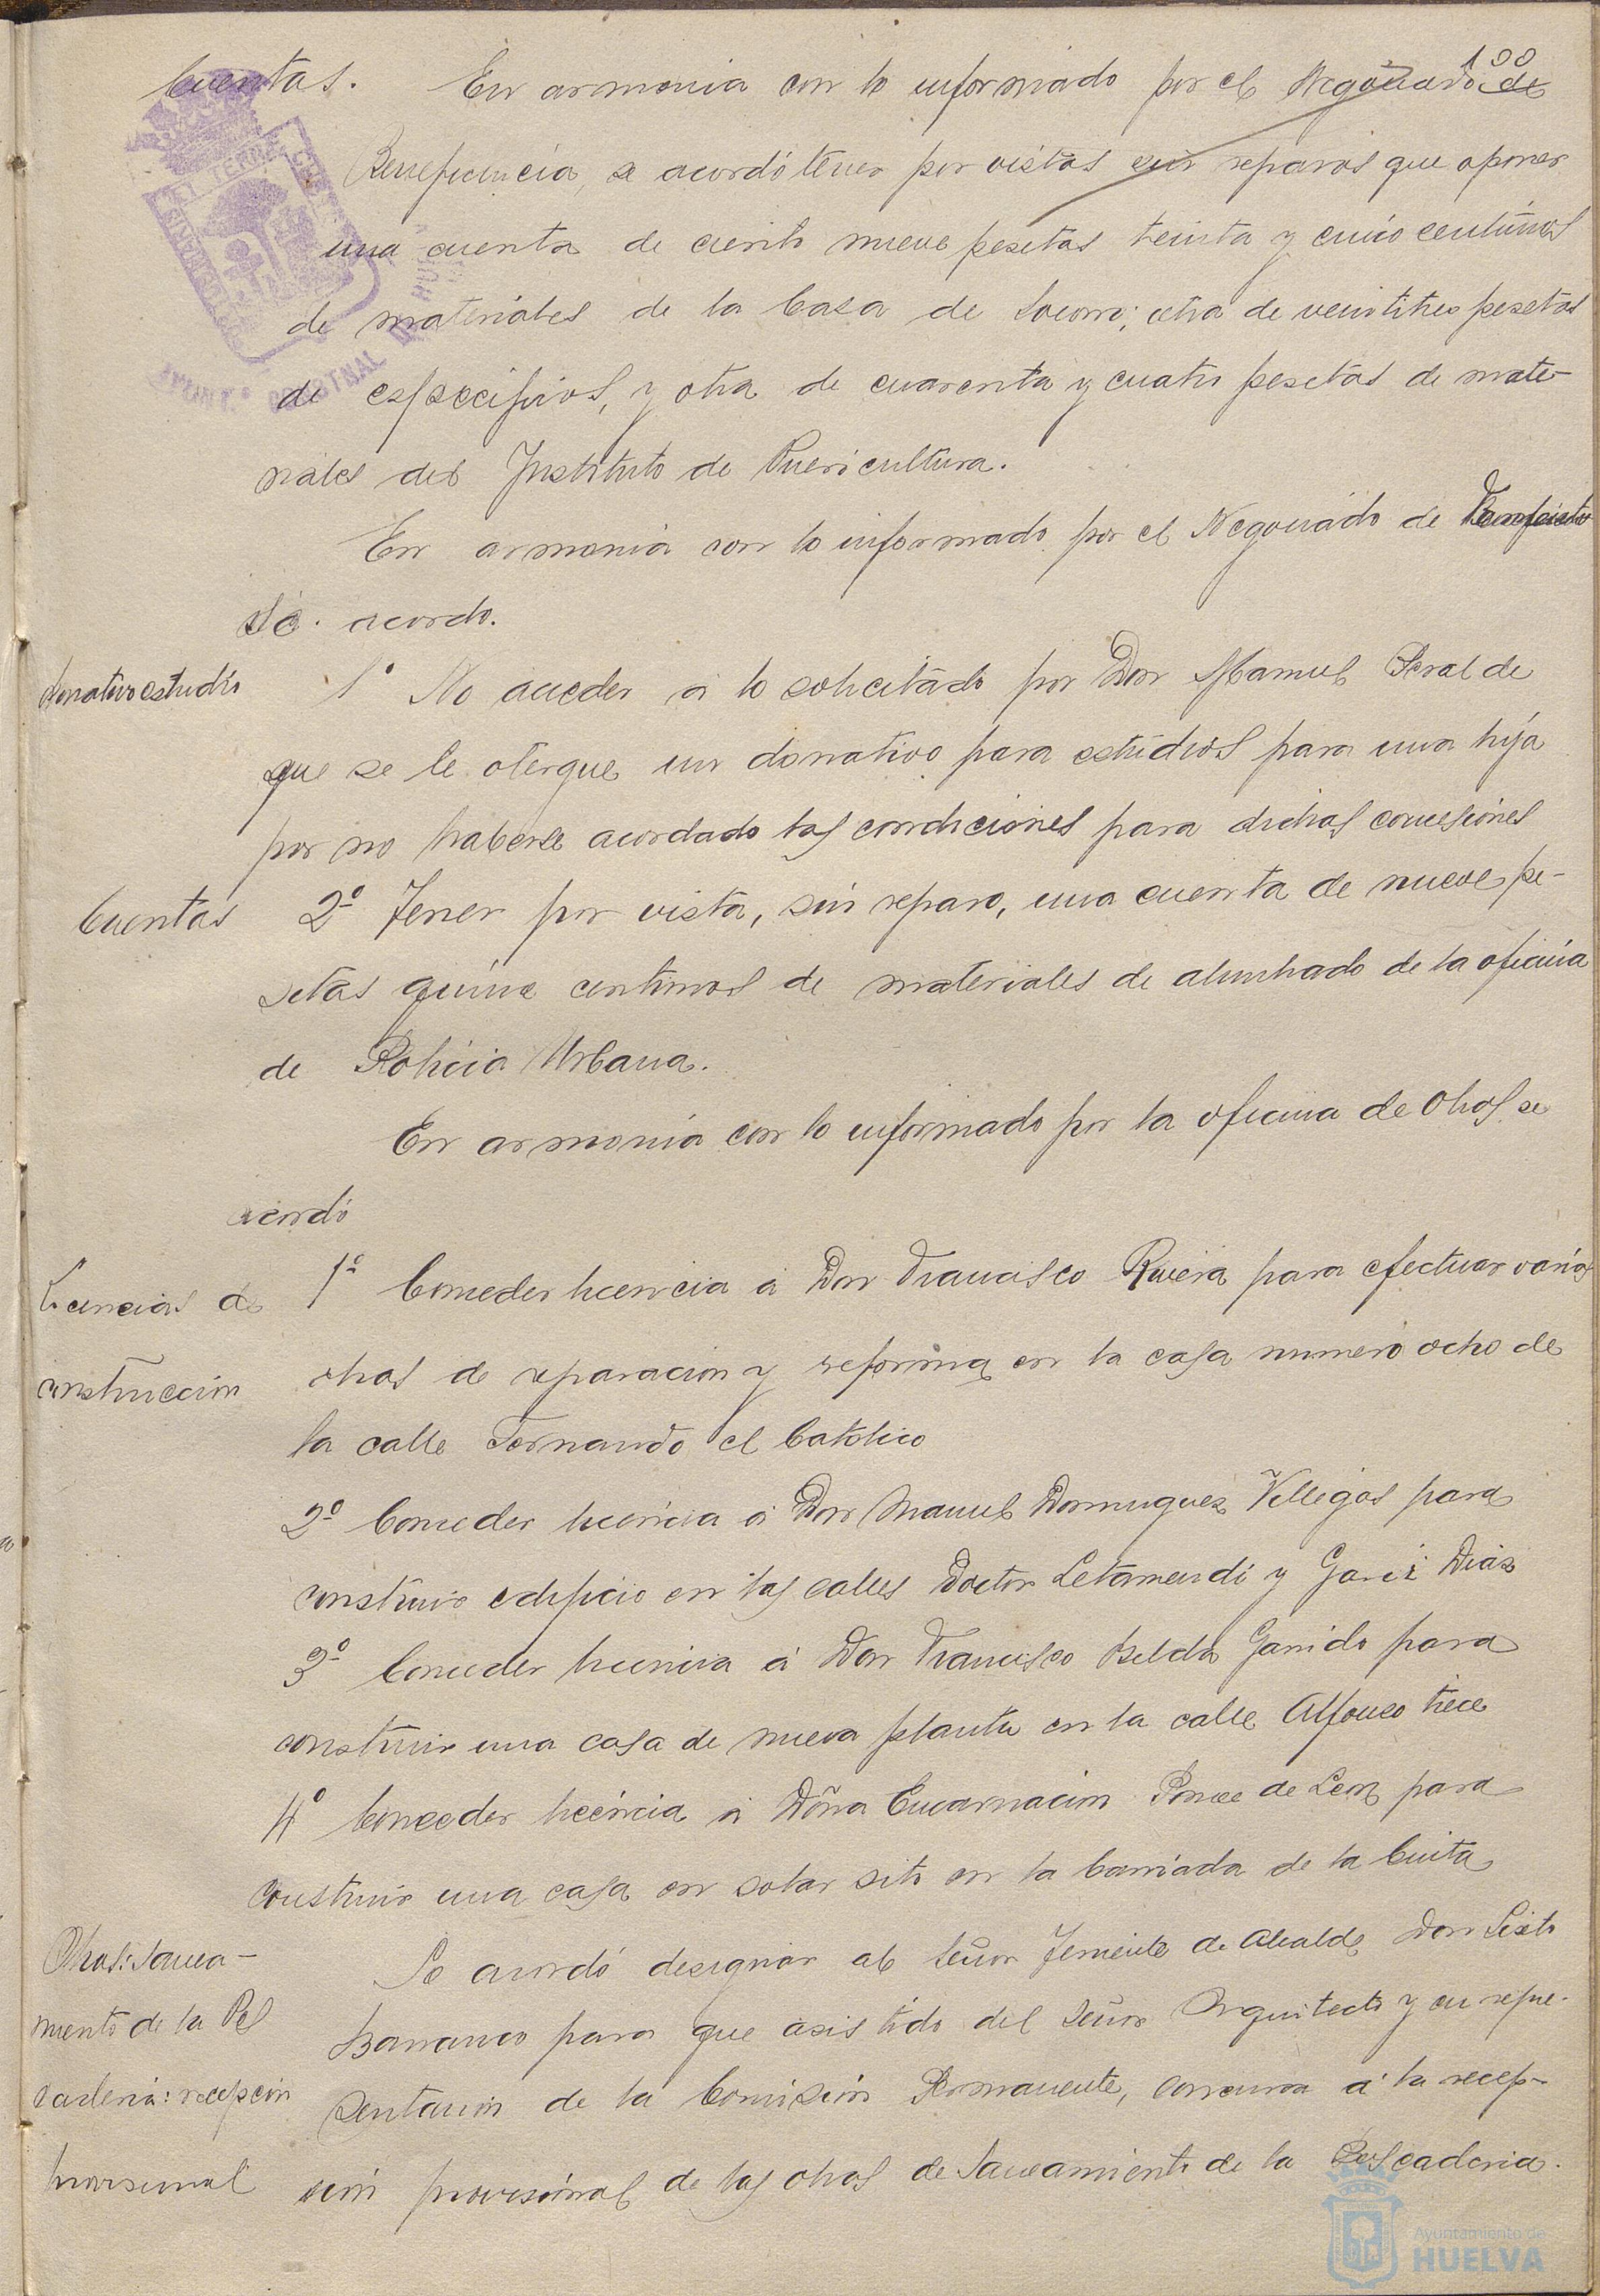 100
Cuentas. En armonia con lo informado por el Negociado de
Beneficencia, se acordó tener por vistas sin reparos que oponer
una cuenta de ciento nueve pesetas treinta y cinco centimos
de materiales de la Casa de Socorro; otra de veintitres pesetas
de especificos, y otra de cuarenta y cuatro pesetas de mate-
riales del Instituto de Puericultura.
En armonia con lo informado por el Negociado de
Se acordo.
donativo estudio 1º No acceder a lo solicitado por Don Manuel Peral de
que se le otorgue un donativo para estudios para una hija
por no haberse acordado las condiciones para dichas concesiones
Cuentas 2º Tener por vista, sin reparo, una cuenta de nueve pe-
setas quince centimos de materiales de alumbrado de la oficina
de Policia Urbana.
En armonia con lo informado por la oficina de Obras se
acordó
Licencias de 1º Conceder licencia a Don Francisco Rivera para efectuar varias
construccion obras de reparacion y reforma en la casa numero ocho de
la calle Fernando el Catolico
2º Conceder licencia a Don Manuel Dominguez Villegas para
construir edificio en las calles Doctor Letamendi y Garci Diaz
3º Conceder licencia a Don Francisco Belda Garrido para
construir una casa de nueva planta en la calle Alfonso trece
4º Conceder licencia a Doña Encarnacion Ponce de Leon para
construir una casa en solar sito en la barriada de la Cinta
Obras: sanea- Se acordó designar al señor Teniente de Alcalde Don Sixto
miento de la Pes Barranco para que asistido del señor Arquitecto y en repre-
caderia: recepcion sentacion de la Comision Permanente, concurra a la recep-
provisional cion provisional de las obras de Saneamiento de la Pescaderia.
Ayuntamiento de
HUELVA